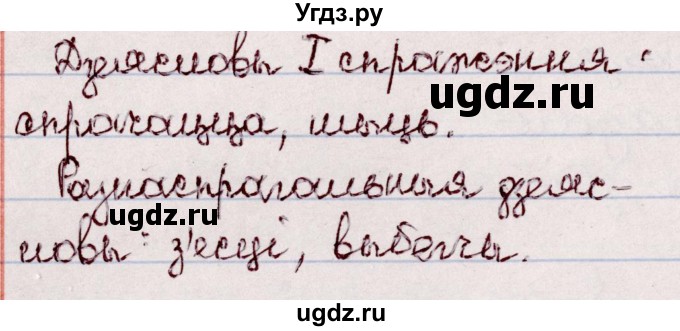 Угдз.ру
Дзеясловы I спражэння:
ugdz.ru
спрачацца, шыць.
ugdz.ru
Рознаспрагальныя дзеяс-
ловы: з'есці, выбегчы.
ugdz.ru
ugdz.ru